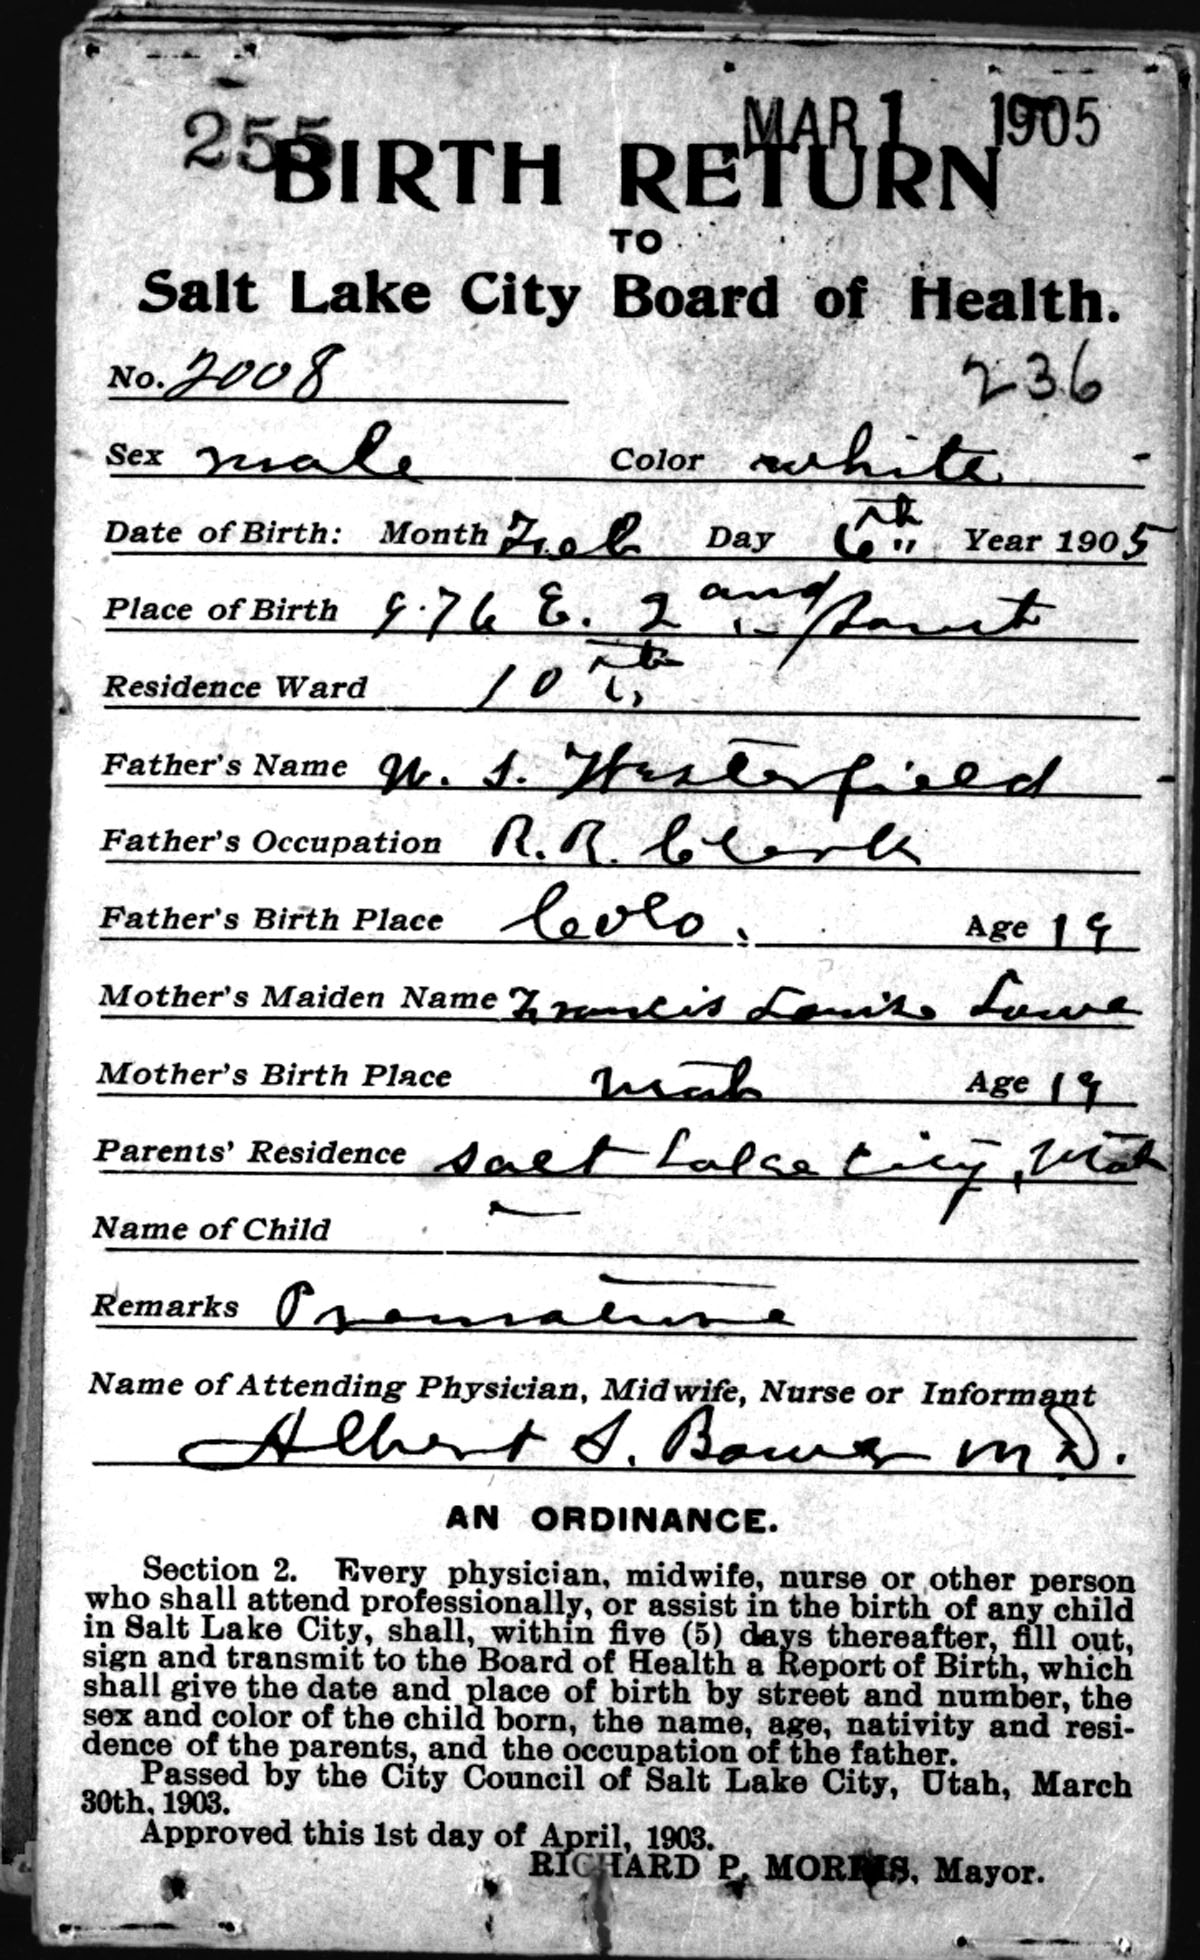 255 MAR 1 1905
BIRTH RETURN
TO
Salt Lake City Board of Health.
No. 2008 236
Sex male Color white
Date of Birth: Month Feb Day 6th Year 1905
Place of Birth 976 E. 2nd South
Residence Ward 10th
Father's Name W. S. Westerfield
Father's Occupation R. R. Clerk
Father's Birth Place Colo. Age 19
Mother's Maiden Name Francis Louise Lowe
Mother's Birth Place Utah Age 19
Parents' Residence Salt Lake City, Utah
Name of Child —
Remarks Premature
Name of Attending Physician, Midwife, Nurse or Informant
Albert S. Bower M D.
AN ORDINANCE.
Section 2. Every physician, midwife, nurse or other person
who shall attend professionally, or assist in the birth of any child
in Salt Lake City, shall, within five (5) days thereafter, fill out,
sign and transmit to the Board of Health a Report of Birth, which
shall give the date and place of birth by street and number, the
sex and color of the child born, the name, age, nativity and resi-
dence of the parents, and the occupation of the father.
Passed by the City Council of Salt Lake City, Utah, March
30th, 1903.
Approved this 1st day of April, 1903.
RICHARD P. MORRIS, Mayor.